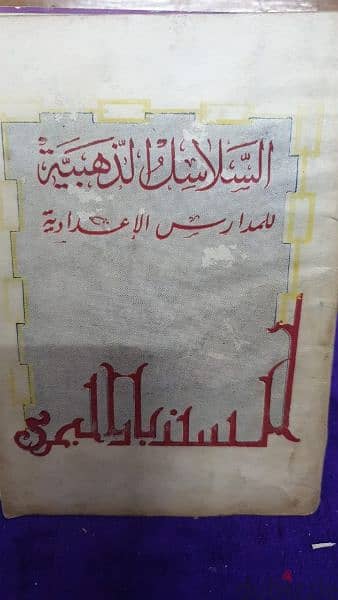 السّلاسلُ الذّهبيَّة
للمدارس الإعدادية
السندباد البحرى